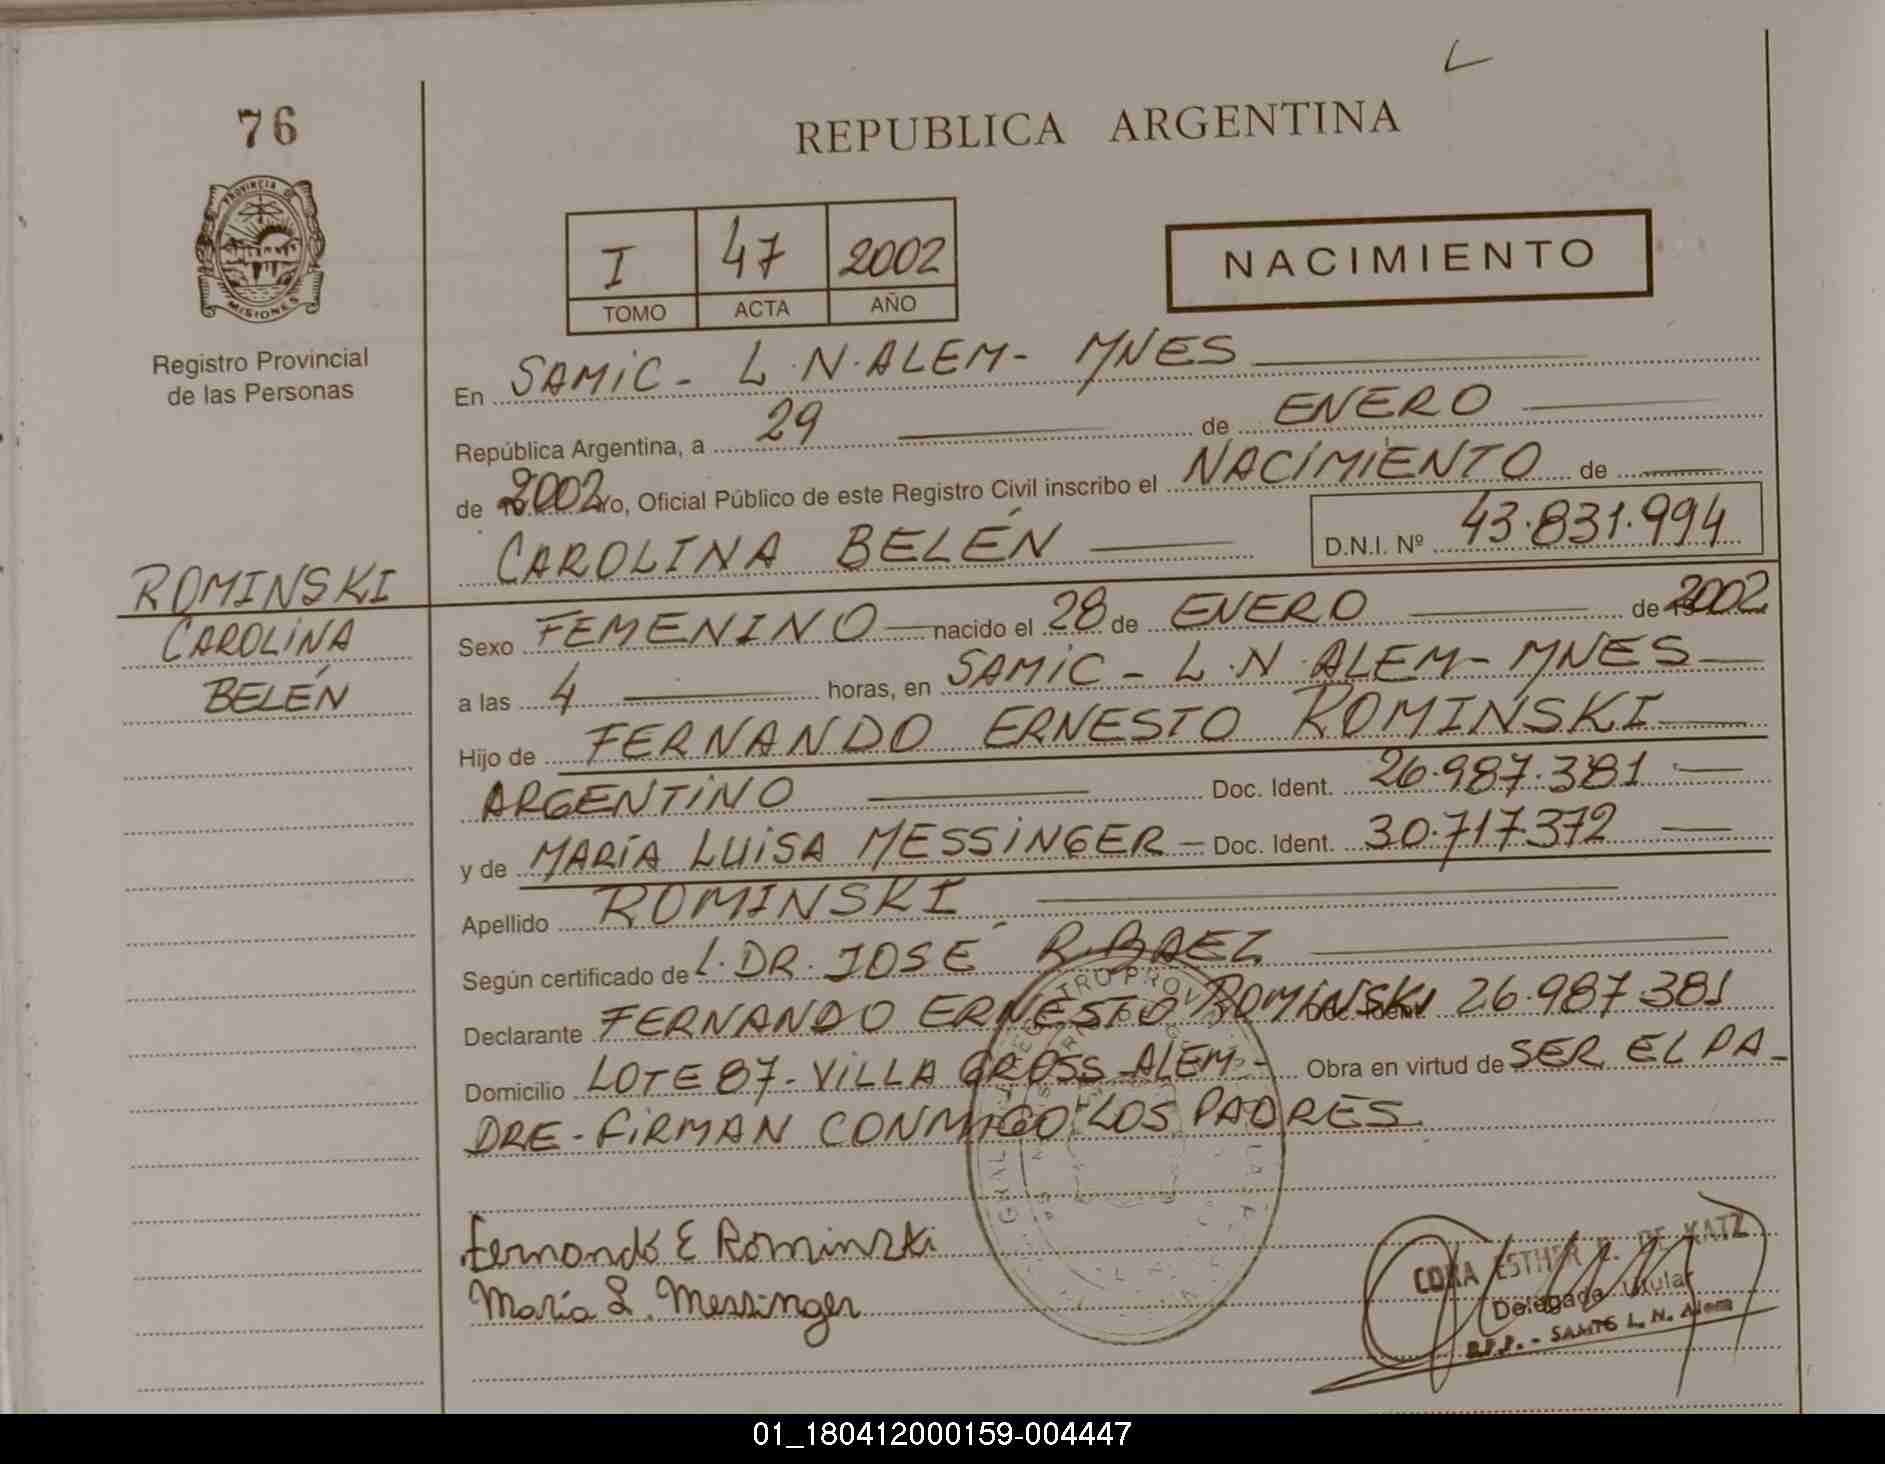 76
REPUBLICA ARGENTINA
PROVINCIA D
MISIONES
Registro Provincial
de las Personas
I 47 2002
TOMO ACTA AÑO
NACIMIENTO
En SAMIC - L.N.ALEM - MNES
República Argentina, a 29 de ENERO
de 2002 Yo, Oficial Público de este Registro Civil inscribo el NACIMIENTO de
CAROLINA BELÉN D.N.I. Nº 43.831.994
ROMINSKI
CAROLINA
BELÉN
Sexo FEMENINO nacido el 28 de ENERO de 2002
a las 4 horas, en SAMIC - L.N.ALEM - MNES
Hijo de FERNANDO ERNESTO ROMINSKI
ARGENTINO Doc. Ident. 26.987.381
y de MARÍA LUISA MESSINGER - Doc. Ident. 30.717.372
Apellido ROMINSKI
Según certificado de L. DR. JOSÉ R. BAEZ
Declarante FERNANDO ERNESTO ROMINSKI Doc. Ident. 26.987.381
Domicilio LOTE 87 - VILLA GROSS - ALEM - Obra en virtud de SER EL PA-
DRE - FIRMAN CONMIGO LOS PADRES
Fernando E Rominski
María L. Messinger
CORA ESTHER DE KATZ
Delegada Titular
R.P.P. - SAMIC L. N. Alem
01_180412000159-004447